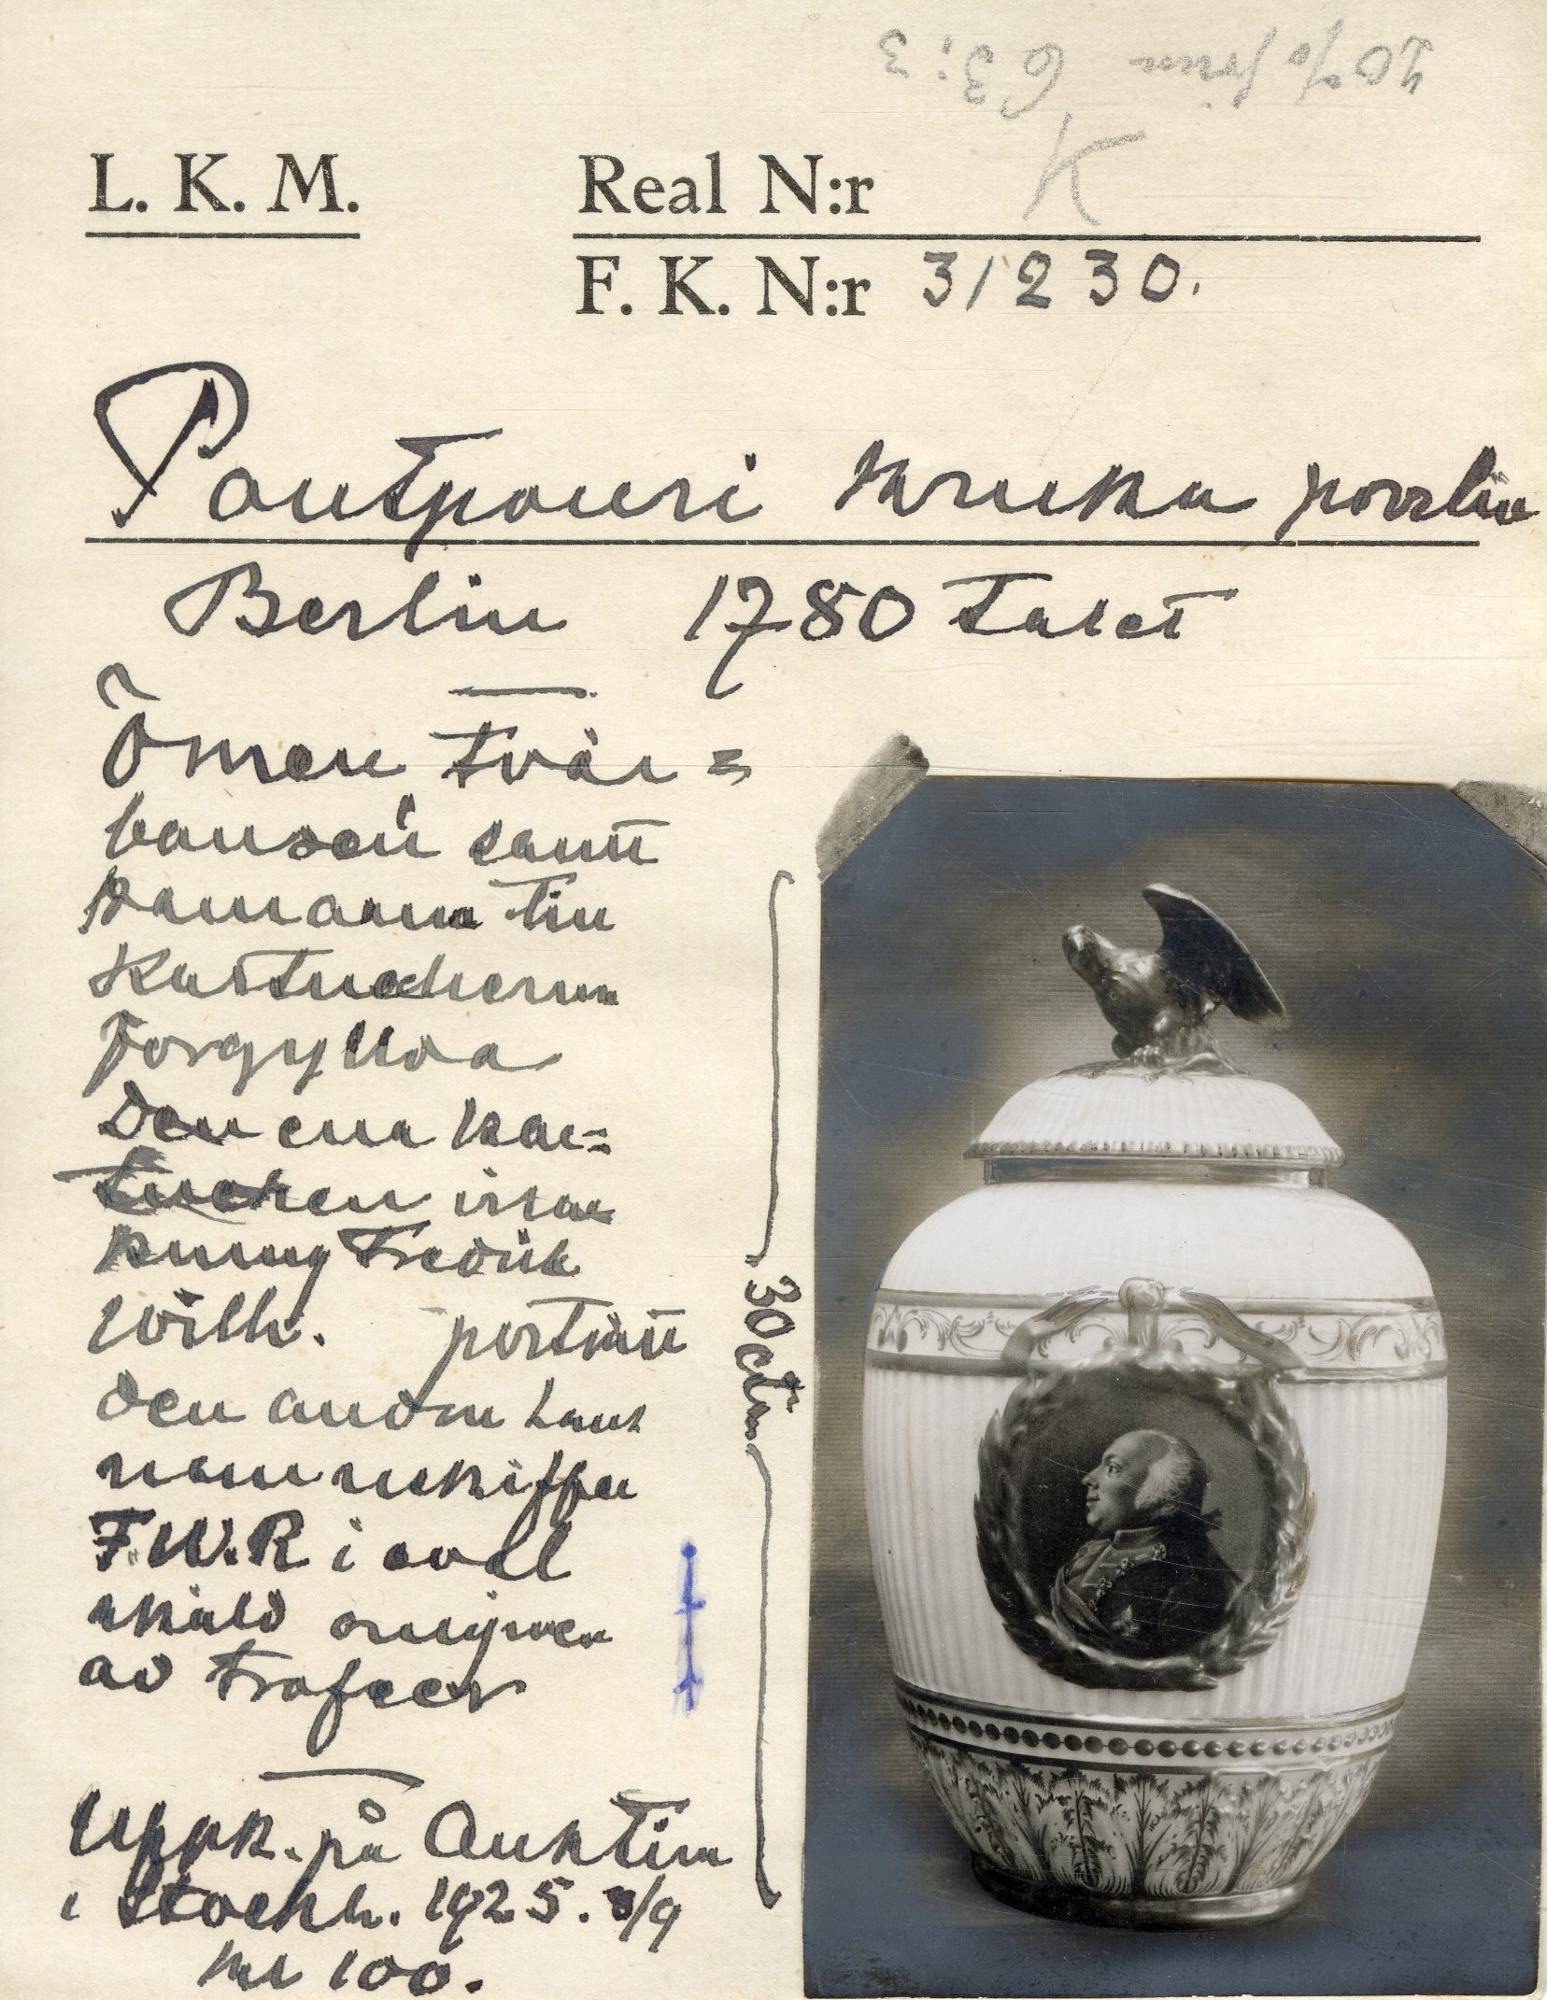 40% från 63:3
K
L. K. M.
Real N:r
F. K. N:r 31230.
Poutpouri kruka porslin
Berlin 1780 talet
Örnen tvär=
banden samt
ramarna till
Kartucherna
förgyllda
Den ena kar=
tuchen visar
kung Fredrik
Wilh. porträtt
den andra hans
namnskiffer
F.W.R i oval
sköld omgiven
av trofeer
30 ctm
Uppk. på Auktion
i Stockh. 1925. 8/9
kr 100.